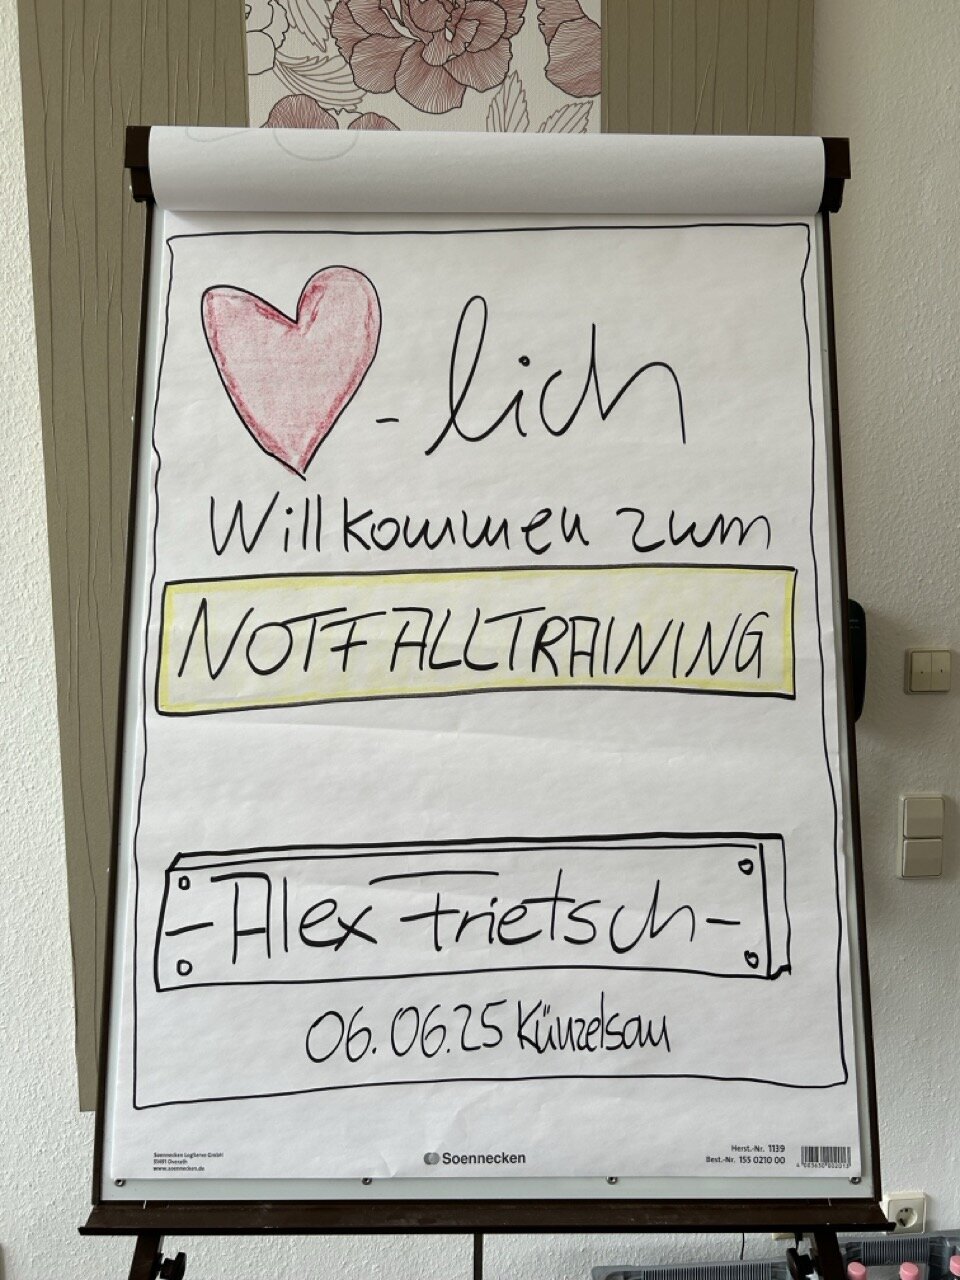 -lich
Willkommen zum
NOTFALLTRAINING
-Alex Frietsch-
06.06.25 Künzelsau
Soennecken LogServe GmbH
51491 Overath
www.soennecken.de
Soennecken
Herst.-Nr. 1139
Best.-Nr. 155 0210 00